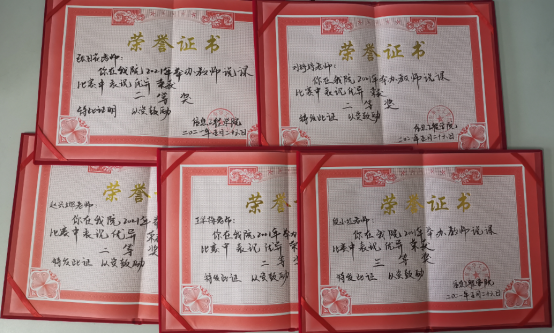 荣誉证书
老师：
你在我院2021年举办教师说课
比赛中表现优异 荣获
二等奖
特此证明 以资鼓励
信息工程学院
二〇二一年五月二十六日
荣誉证书
老师：
你在我院2021年举办教师说课
比赛中表现优异 荣获
二等奖
特发此证 以资鼓励
信息工程学院
二〇二一年五月二十六日
荣誉证书
老师：
你在我院2021年
比赛中表现优异 荣获
二等奖
特发此证 以资鼓励
荣誉证书
老师：
你在我院2021年举办
比赛中表现优异 荣获
二等奖
特发此证 以资鼓励
荣誉证书
老师：
你在我院2021年举办教师说课
比赛中表现优异 荣获
三等奖
特发此证 以资鼓励
信息工程学院
二〇二一年五月二十六日